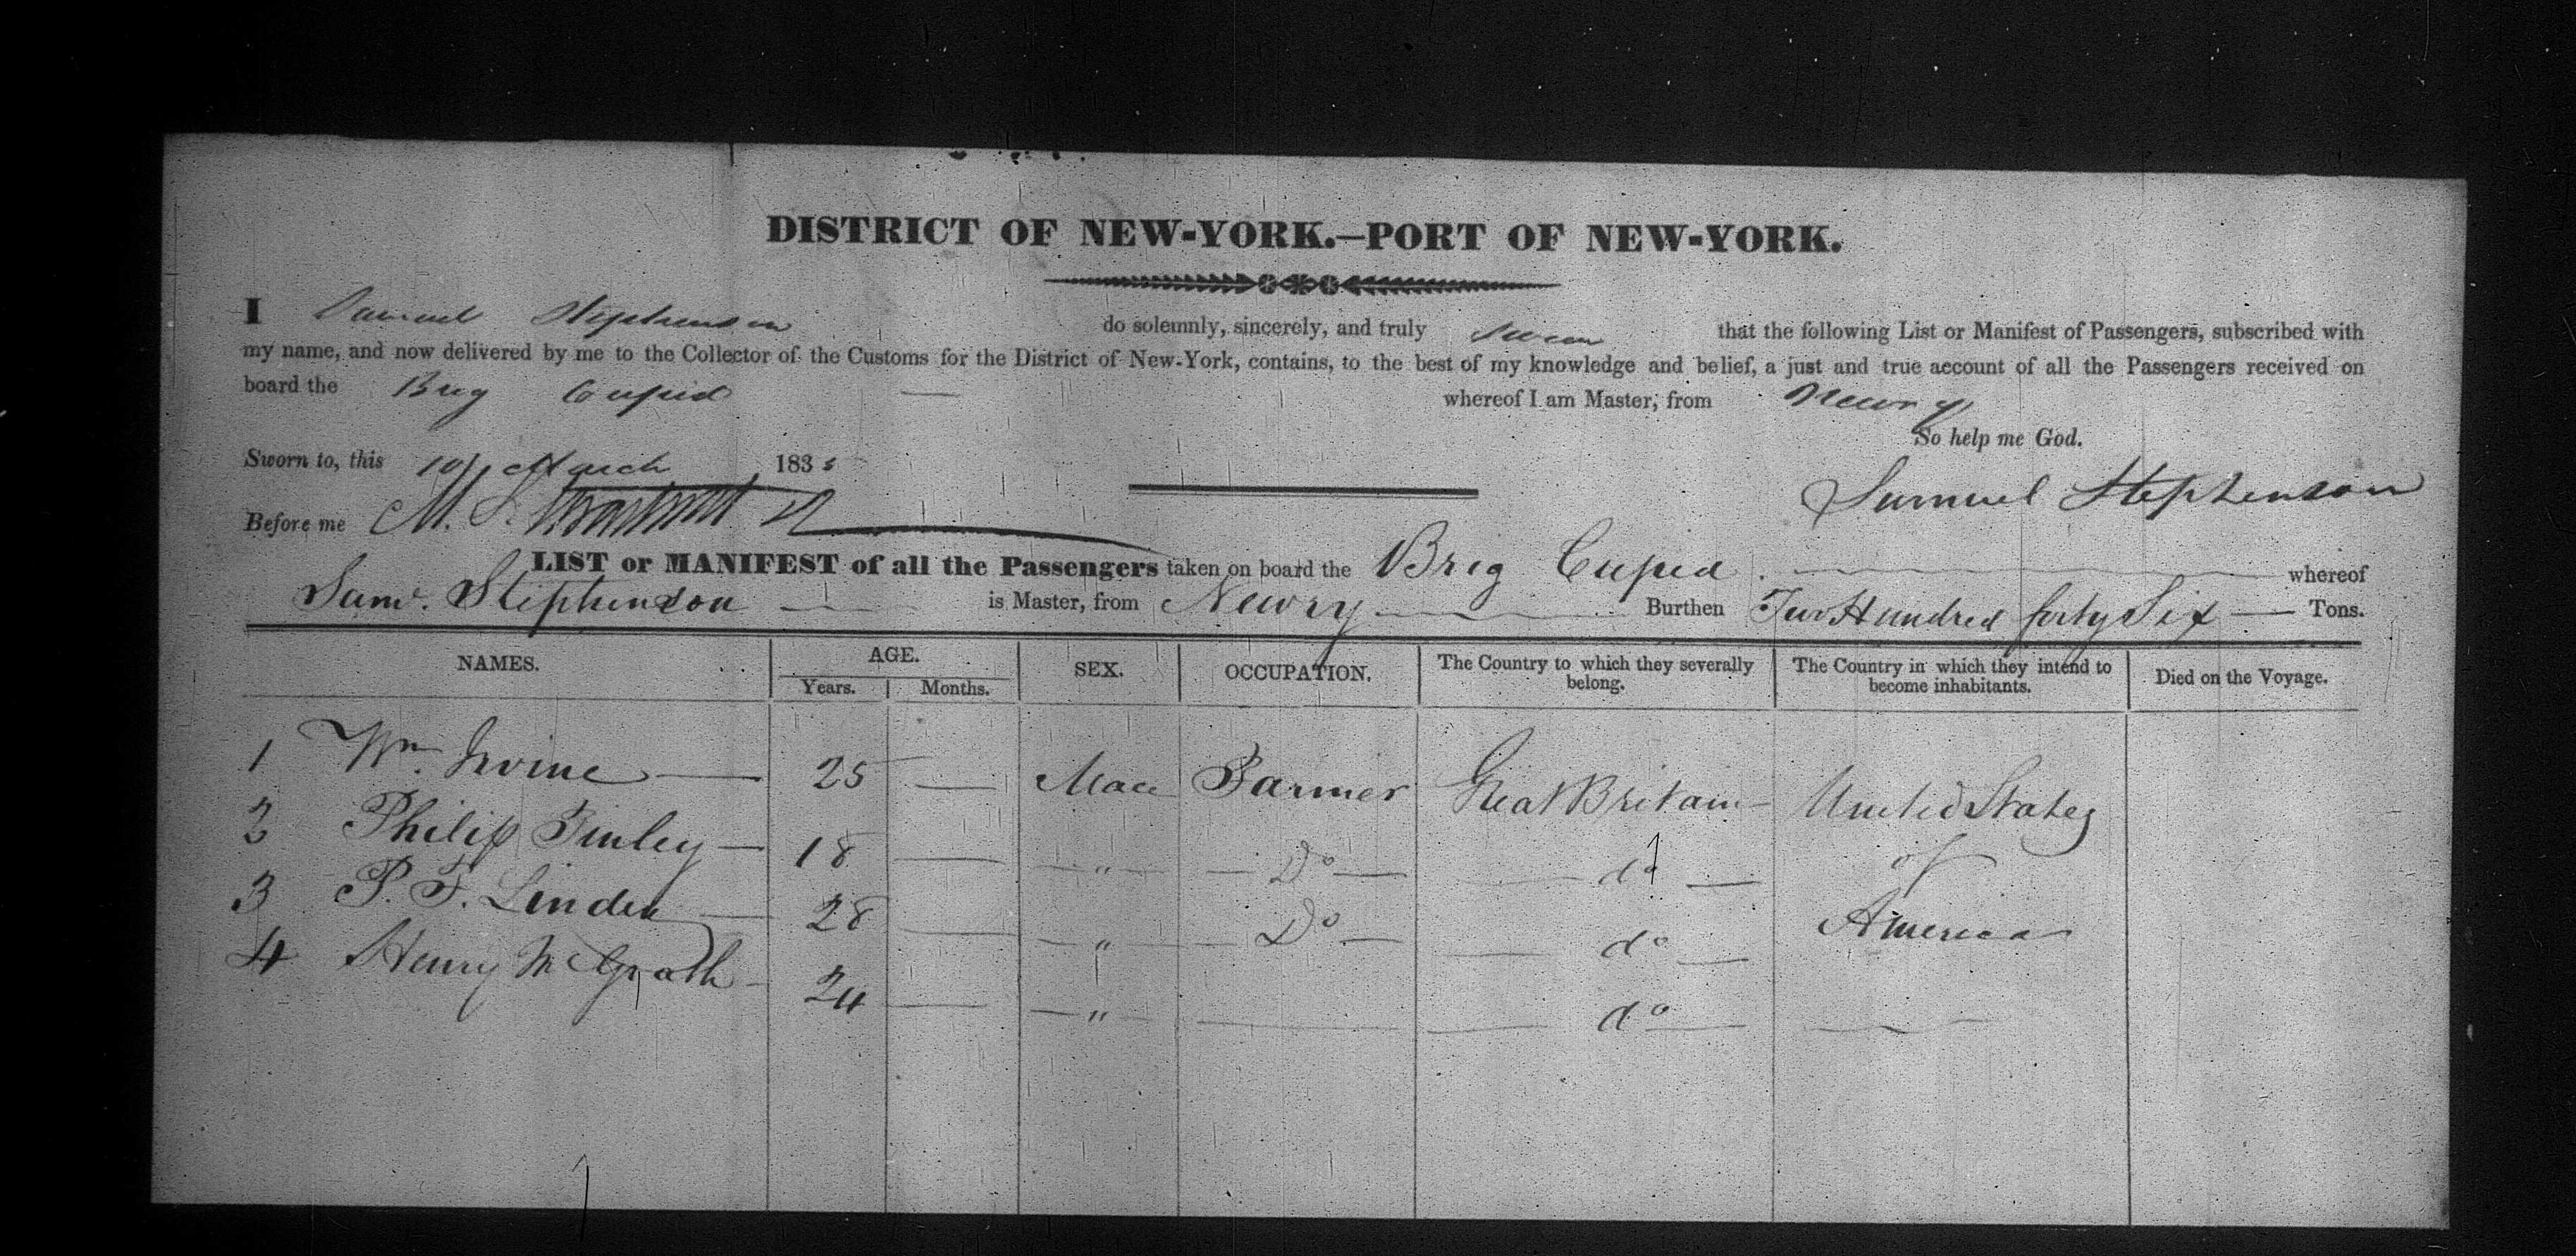 DISTRICT OF NEW-YORK.—PORT OF NEW-YORK.
I Samuel Stephenson do solemnly, sincerely, and truly swear that the following List or Manifest of Passengers, subscribed with
my name, and now delivered by me to the Collector of the Customs for the District of New-York, contains, to the best of my knowledge and belief, a just and true account of all the Passengers received on
board the Brig Cupid — whereof I am Master, from Newry
So help me God.
Sworn to, this 10 March 183
Samuel Stephenson
Before me M.
LIST or MANIFEST of all the Passengers taken on board the Brig Cupid. — whereof
Saml. Stephenson — is Master, from Newry — Burthen Two Hundred forty Six — Tons.
NAMES. AGE. SEX. OCCUPATION. The Country to which they severally belong. The Country in which they intend to become inhabitants. Died on the Voyage.
Years. Months.
1 Wm. Irvine — 25 — Male Farmer Great Britain — United States
2 Philip Finley — 18 — " — Do — — do — of
3 P. F. Linden — 28 — " — Do — — do — America
4 Henry McGrath — 24 — " — — do — —